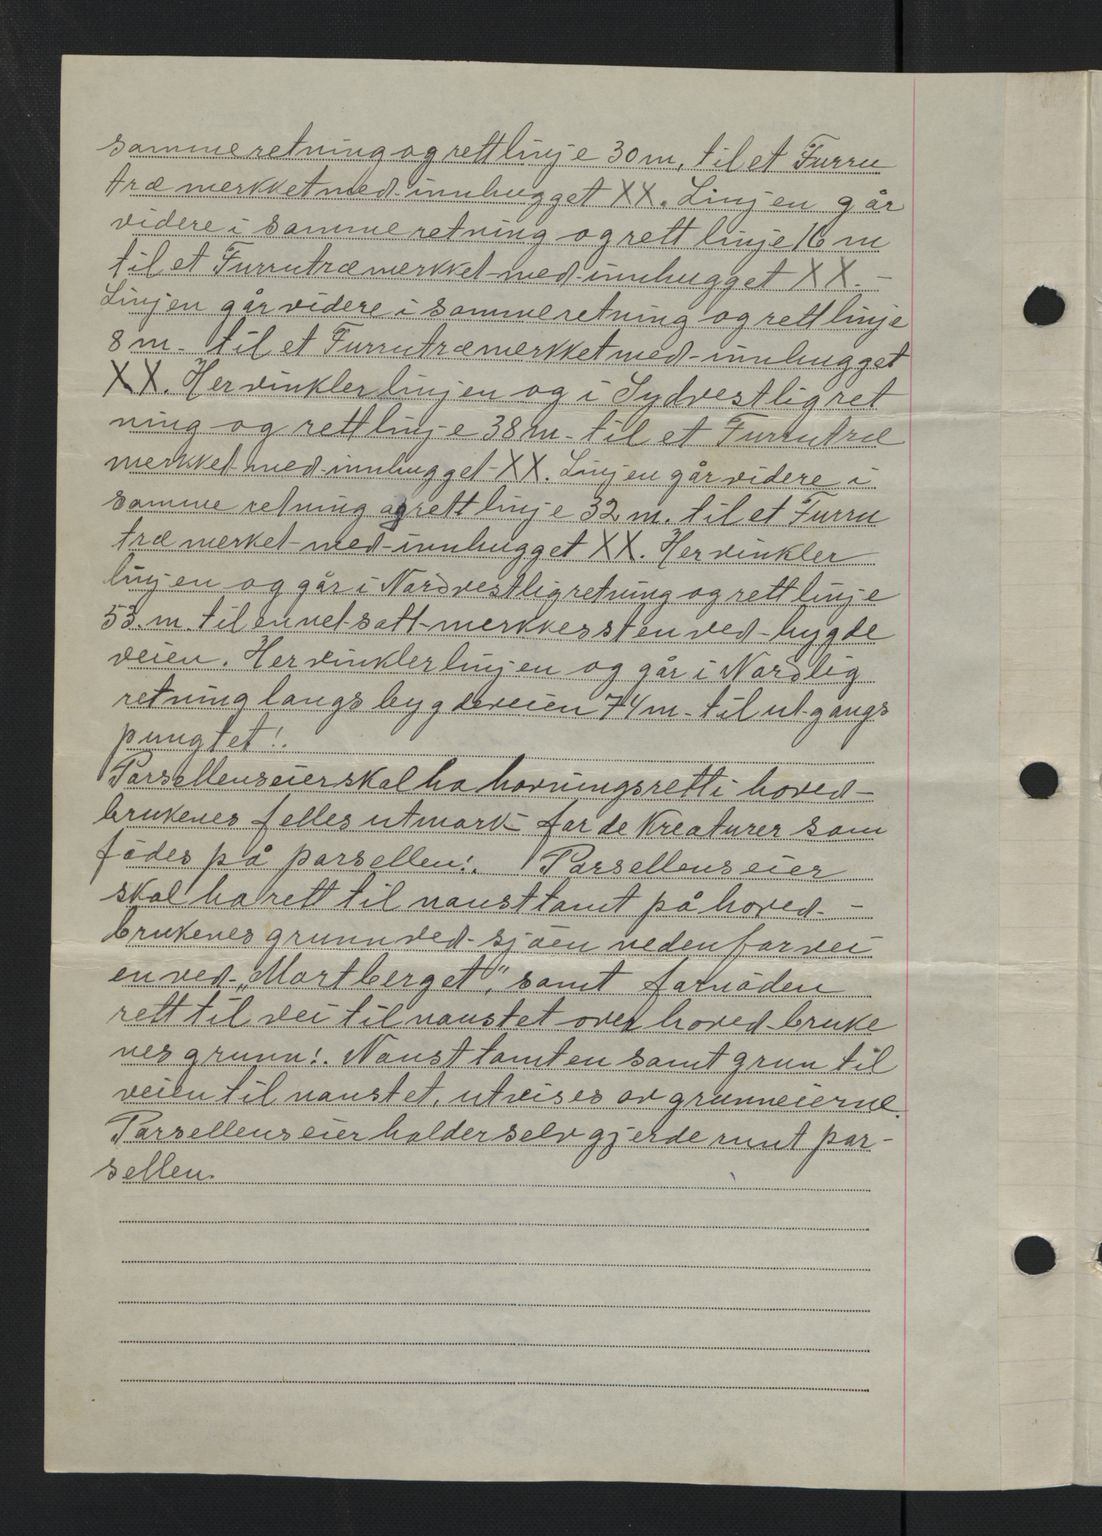 samme retning og rett linje 30 m, til et Furru
træ merkket med innhugget XX. Linjen går
videre i samme retning og rett linje 16 m
til et Furrutræ merkket med innhugget XX. –
Linjen går videre i samme retning og rett linje
8 m – til et Furrutræ merkket med innhugget
XX. Her vinkler linjen og i Sydvestlig ret
ning og rett linje 38 m – til et Furrutræ
merkket med innhugget XX. Linjen går videre i
samme retning og rett linje 32 m. til et Furru
træ merket med innhugget XX. Her vinkler
linjen og går i Nordvestlig retning og rett linje
53. m. til en net satt merkkessten ved bygde
veien. Her vinkler linjen og går i Nordlig
retning langs bygdeveien 74 m – til ut gangs
pungtet!.
Parsellens eier skal ha havningsrett i hoved –
brukenes felles utmark – for de Kreaturer som
födes på parsellen!. Parsellens eier
skal ha rett til nausttomt på hoved. –
brukenes grunn ved sjöen nedenfor vei
en ved „Mortberget", samt fornöden
rett til vei til naustet over hoved bruke
nes grunn!. Naust tomten samt grun til
veien til naustet, utvises av grunneierne.
Parsellens eier holder selv gjerde runt par –
sellen.